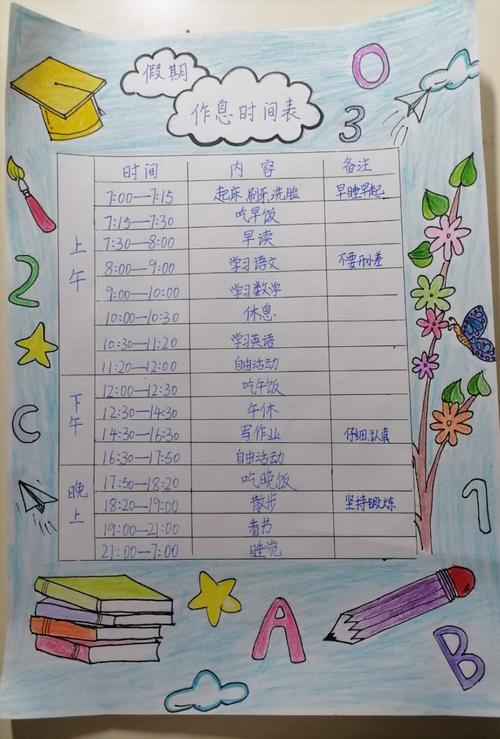 假期
作息时间表
时间 内容 备注
上午
7:00—7:15 起床 刷牙 洗脸 早睡早起
7:15—7:30 吃早饭
7:30—8:00 早读
8:00—9:00 学习语文 不要开小差
9:00—10:00 学习数学
10:00—10:30 休息
10:30—11:20 学习英语
11:20—12:00 自由活动
下午
12:00—12:30 吃午饭
12:30—14:30 午休
14:30—16:30 写作业 仔细认真
16:30—17:50 自由活动
晚上
17:50—18:20 吃晚饭
18:20—19:00 散步 坚持锻炼
19:00—21:00 看书
21:00—7:00 睡觉
O
3
2
C
1
A
B